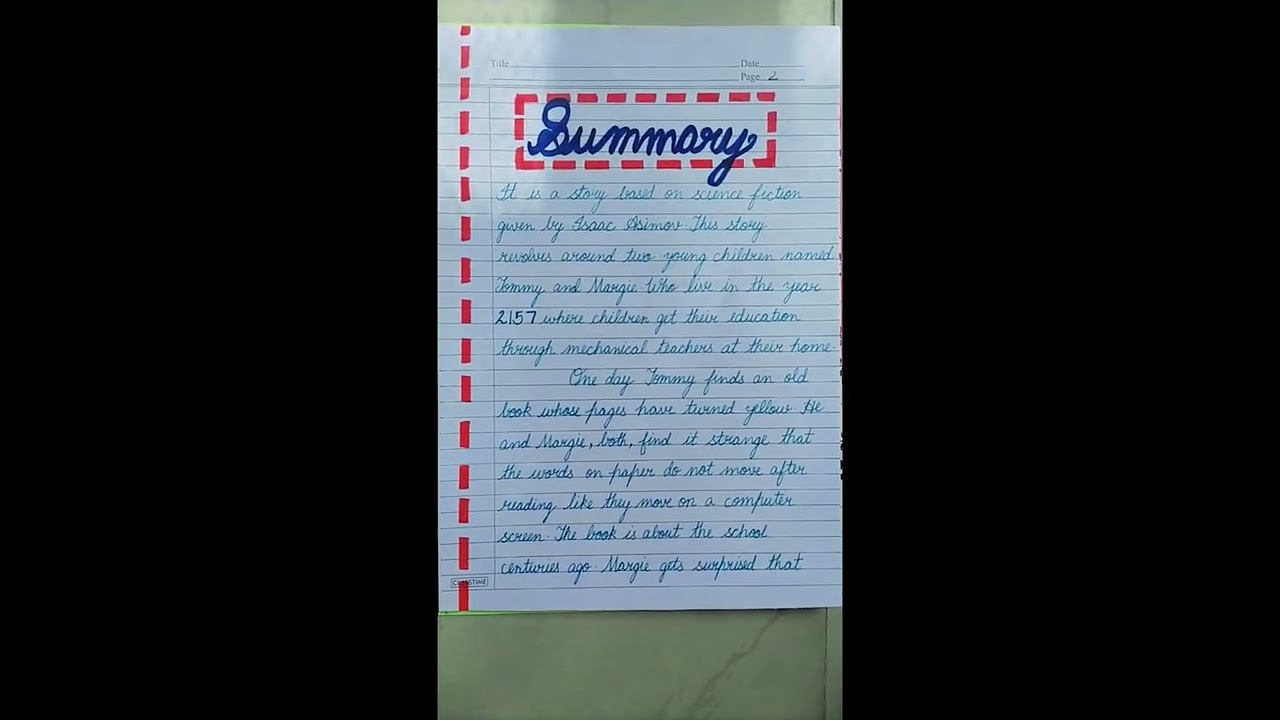 Title
Date
Page 2
Summary
It is a story based on science fiction
given by Isaac Asimov. This story
revolves around two young children named
Tommy and Margie. Who live in the year
2157 where children get their education
through mechanical teachers at their home.
One day Tommy finds an old
book whose pages have turned yellow. He
and Margie, both, find it strange that
the words on paper do not move after
reading like they move on a computer
screen. The book is about the school
centuries ago. Margie gets surprised that
CLASSTIME